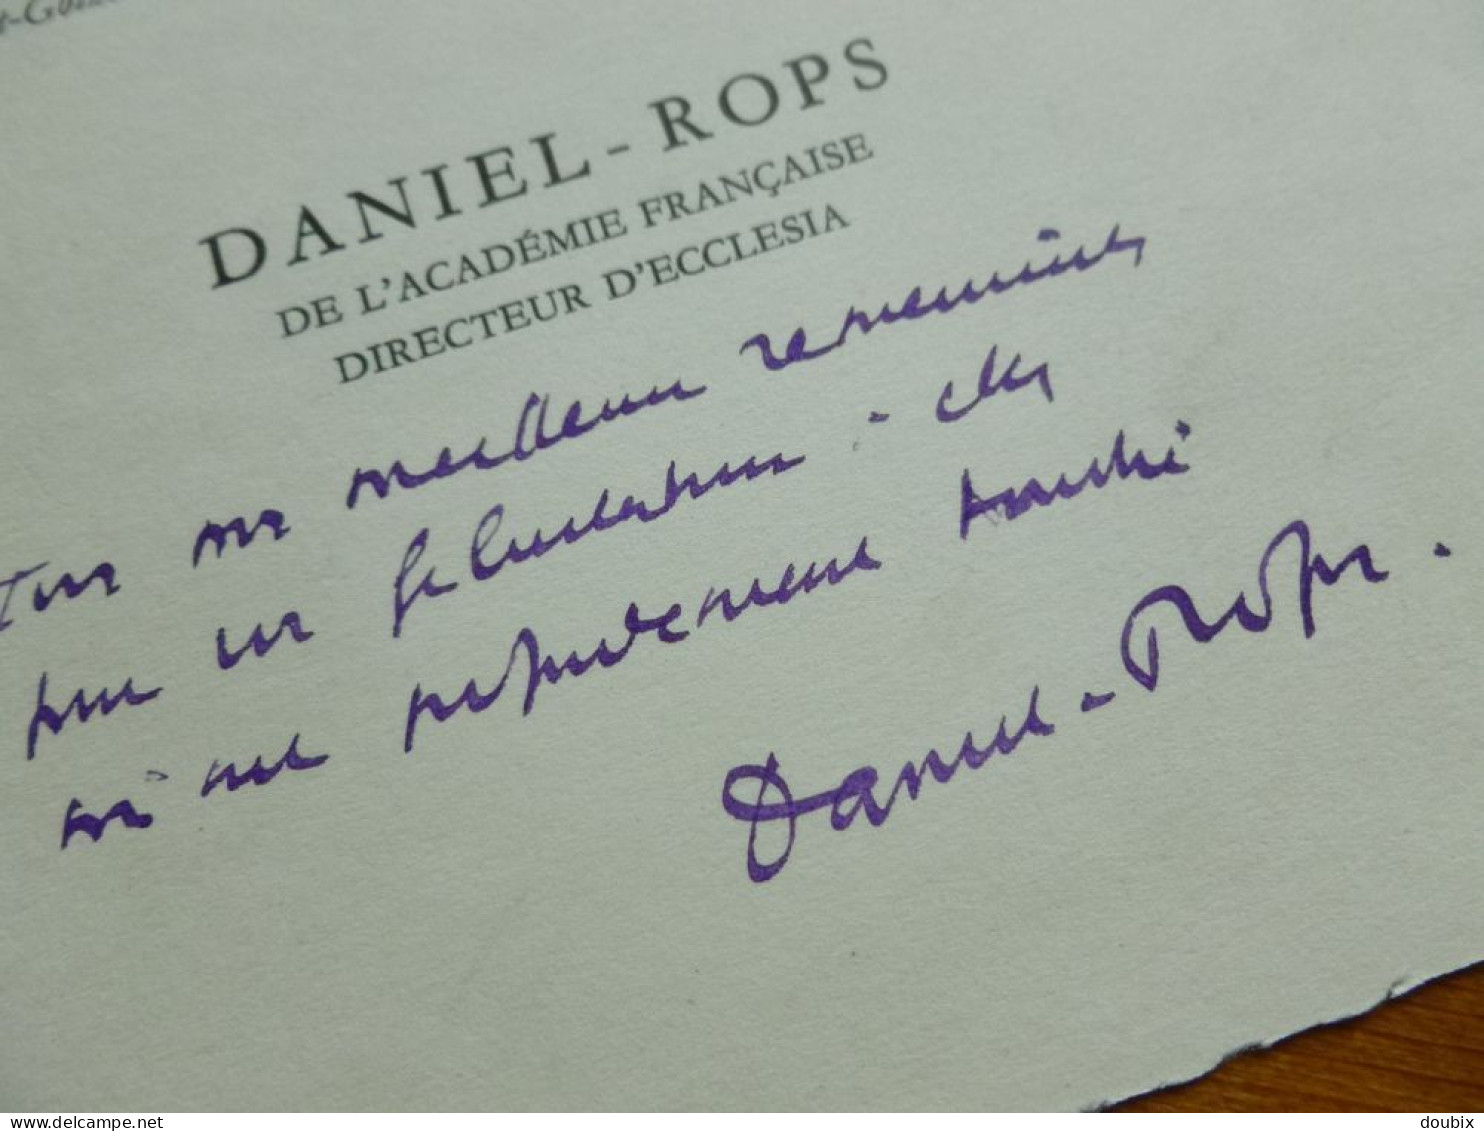 DANIEL-ROPS
DE L'ACADÉMIE FRANÇAISE
DIRECTEUR D'ECCLESIA
Tous mes meilleurs remerciements
pour vos félicitations : elles
m'ont profondément touché
Daniel-Rops.
delcampe.net
doubix